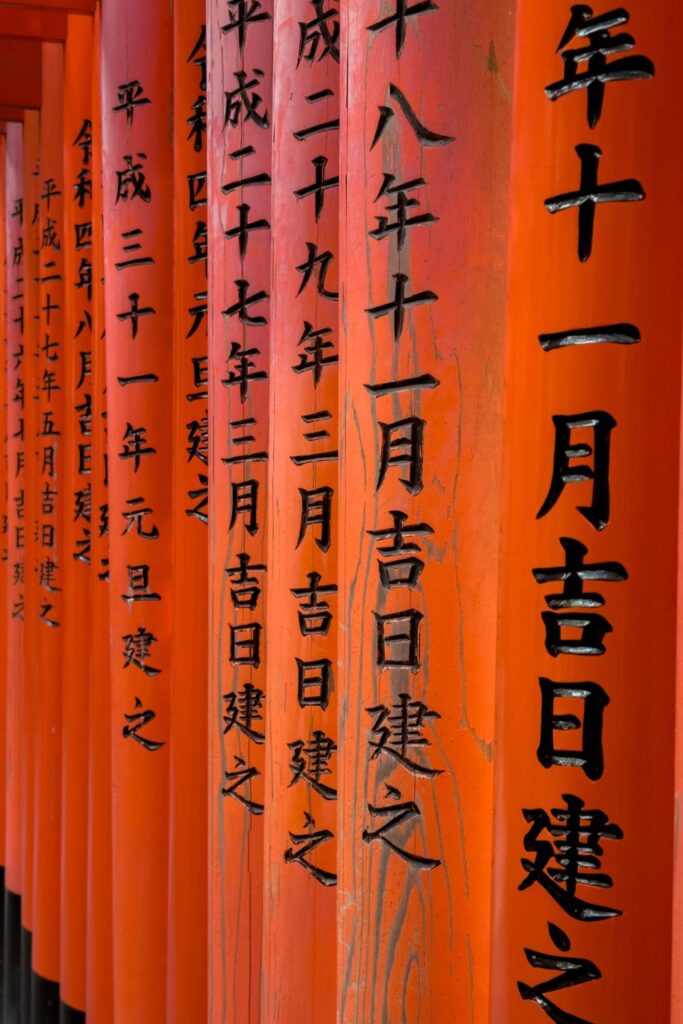 年十一月吉日建之
十八年十一月吉日建之
成二十九年三月吉日建之
平成二十七年三月吉日建之
令和四年元旦建之
平成三十一年元旦建之
令和四年八月吉日建之
平成二十七年五月吉日建之
平成二十六年七月吉日之